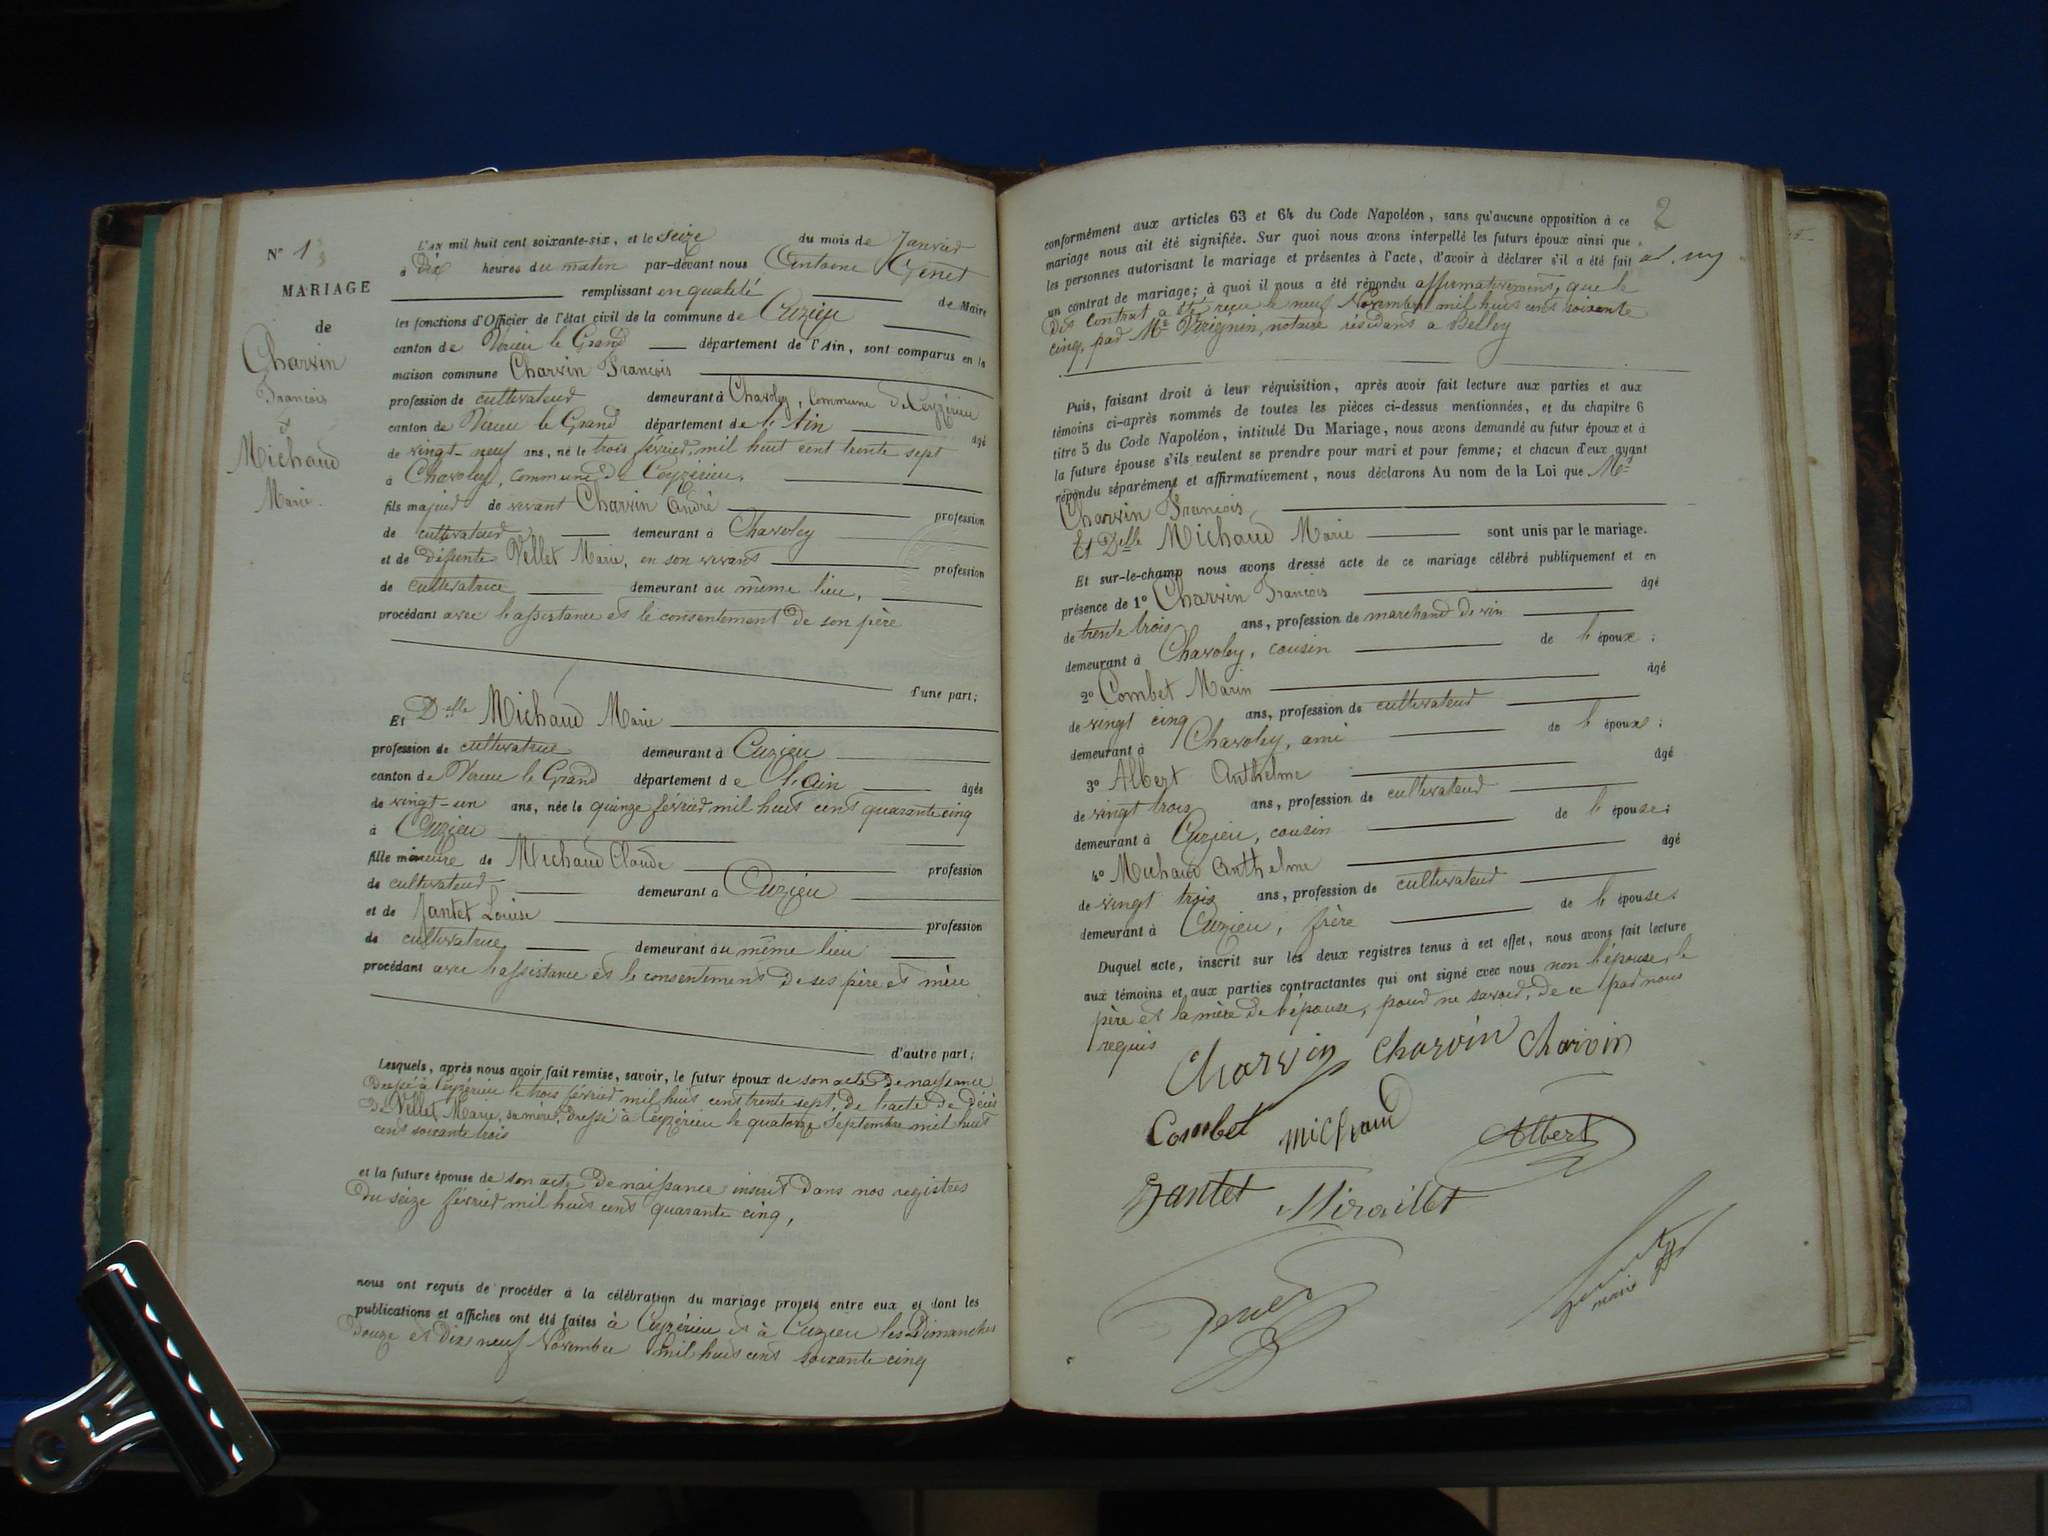 N° 1
MARIAGE
de
Charvin
François
et
Michaud
Marie.
L'AN mil huit cent soixante-six, et le seize du mois de Janvier
à dix heures du matin par-devant nous Antoine Genet
remplissant en qualité de Maire
les fonctions d'Officier de l'état civil de la commune de Cuzieu
canton de Virieu le Grand département de l'Ain, sont comparus en la
maison commune Charvin François
profession de cultivateur demeurant à Chavoley, commune de Ceyzérieu
canton de Virieu le Grand département de l'Ain âgé
de vingt-neuf ans, né le trois février mil huit cent trente sept
à Chavoley, commune de Ceyzérieu,
fils majeur de vivant Charvin André profession
de cultivateur demeurant à Chavoley
et de défunte Vellet Marie, en son vivant profession
de cultivatrice demeurant au même lieu,
procédant avec l'assistance et le consentement de son père
d'une part;
Et Delle Michaud Marie
profession de cultivatrice demeurant à Cuzieu
canton de Virieu le Grand département de l'Ain âgée
de vingt-un ans, née le quinze février mil huit cent quarante cinq
à Cuzieu
fille mineure de Michaud Claude profession
de cultivateur demeurant à Cuzieu
et de Jantet Louise profession
de cultivatrice, demeurant au même lieu
procédant avec l'assistance et le consentement de ses père et mère
d'autre part;
Lesquels, après nous avoir fait remise, savoir, le futur époux de son acte de naissance
dressé à Ceyzérieu le trois février mil huit cent trente sept, de l'acte de décès
de Vellet Marie, sa mère, dressé à Ceyzérieu le quatorze Septembre mil huit
cent soixante trois
et la future épouse de son acte de naissance inscrit dans nos registres
du seize février mil huit cent quarante cinq,
nous ont requis de procéder à la célébration du mariage projeté entre eux et dont les
publications et affiches ont été faites à Ceyzérieu et à Cuzieu les Dimanches
douze et dix neuf Novembre mil huit cent soixante cinq
2
conformément aux articles 63 et 64 du Code Napoléon, sans qu'aucune opposition à ce
mariage nous ait été signifiée. Sur quoi nous avons interpellé les futurs époux ainsi que
les personnes autorisant le mariage et présentes à l'acte, d'avoir à déclarer s'il a été fait
un contrat de mariage; à quoi il nous a été répondu affirmativement, que le
dit contrat a été reçu le neuf Novembre mil huit cent soixante
cinq, par Me notaire résidant à Belley
Puis, faisant droit à leur réquisition, après avoir fait lecture aux parties et aux
témoins ci-après nommés de toutes les pièces ci-dessus mentionnées, et du chapitre 6
titre 5 du Code Napoléon, intitulé Du Mariage, nous avons demandé au futur époux et à
la future épouse s'ils veulent se prendre pour mari et pour femme; et chacun d'eux ayant
répondu séparément et affirmativement, nous déclarons Au nom de la Loi que Mr
Charvin François,
Et Delle Michaud Marie sont unis par le mariage.
Et sur-le-champ nous avons dressé acte de ce mariage célébré publiquement et en
présence de 1° Charvin François âgé
de trente trois ans, profession de marchand de vin
demeurant à Chavoley, cousin de l'époux;
2° Combet Marin âgé
de vingt cinq ans, profession de cultivateur
demeurant à Chavoley, ami de l'époux;
3° Albert Anthelme âgé
de vingt trois ans, profession de cultivateur
demeurant à Cuzieu, cousin de l'épouse;
4° Michaud Anthelme âgé
de vingt trois ans, profession de cultivateur
demeurant à Cuzieu, frère de l'épouse.
Duquel acte, inscrit sur les deux registres tenus à cet effet, nous avons fait lecture
aux témoins et aux parties contractantes qui ont signé avec nous non l'épouse, le
père et la mère de l'épouse, pour ne savoir, de ce par nous
requis
Charvin Charvin Charvin
Combet Michaud Albert
Jantet Miraillet
Genet
maire